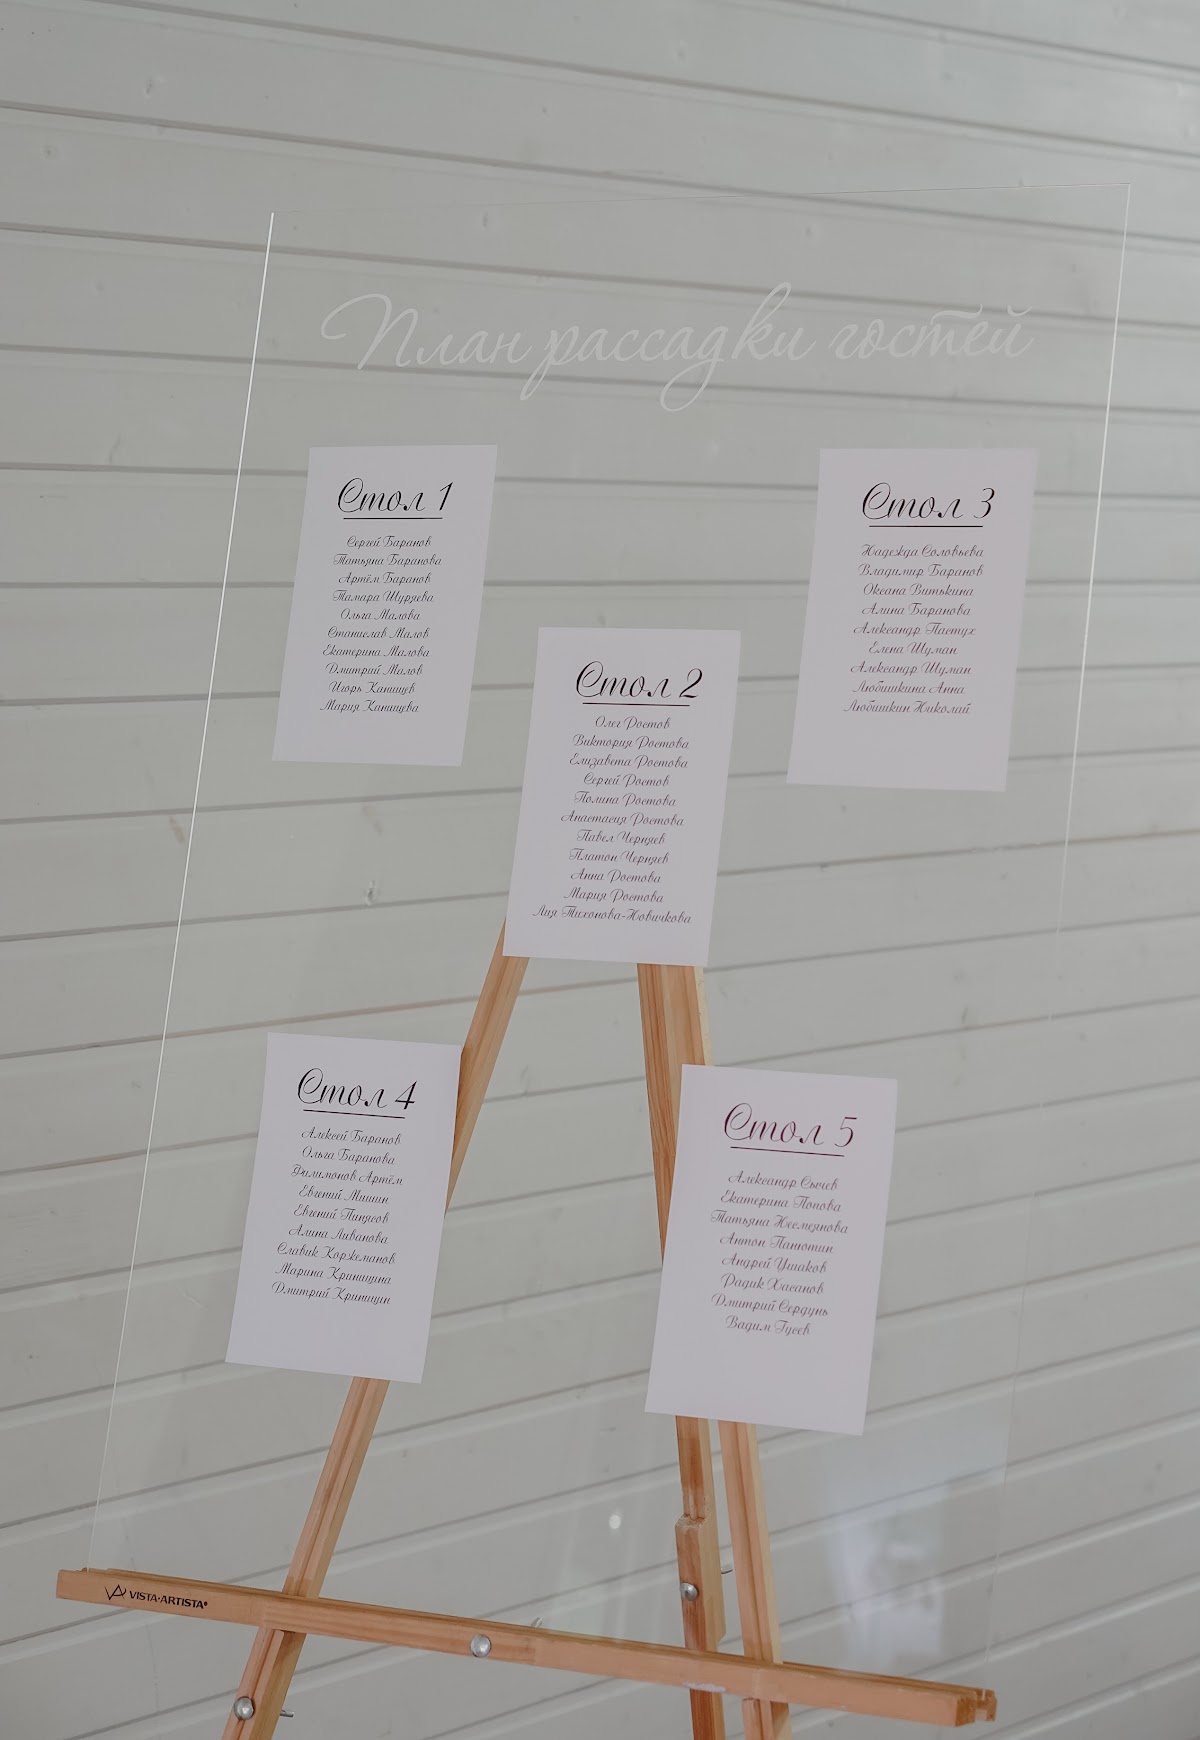 План рассадки гостей
Стол 1
Сергей Баранов
Татьяна Баранова
Артём Баранов
Тамара Шуряева
Ольга Малова
Станислав Малов
Екатерина Малова
Дмитрий Малов
Игорь Канищев
Мария Канищева
Стол 2
Олег Ростов
Виктория Ростова
Елизавета Ростова
Сергей Ростов
Полина Ростова
Анастасия Ростова
Павел Черняев
Платон Черняев
Анна Ростова
Мария Ростова
Лия Тихонова-Новичкова
Стол 3
Надежда Соловьева
Владимир Баранов
Оксана Витькина
Алина Баранова
Александр Пастух
Елена Шуман
Александр Шуман
Любишкина Анна
Любишкин Николай
Стол 4
Алексей Баранов
Ольга Баранова
Филимонов Артём
Евгений Мишин
Евгений Пинясов
Алина Ливанова
Славик Коржеманов
Марина Криницина
Дмитрий Криницин
Стол 5
Александр Сычев
Екатерина Попова
Татьяна Несмеянова
Антон Панютин
Андрей Ушаков
Радик Хасанов
Дмитрий Сердунь
Вадим Гусев
VISTA-ARTISTA®